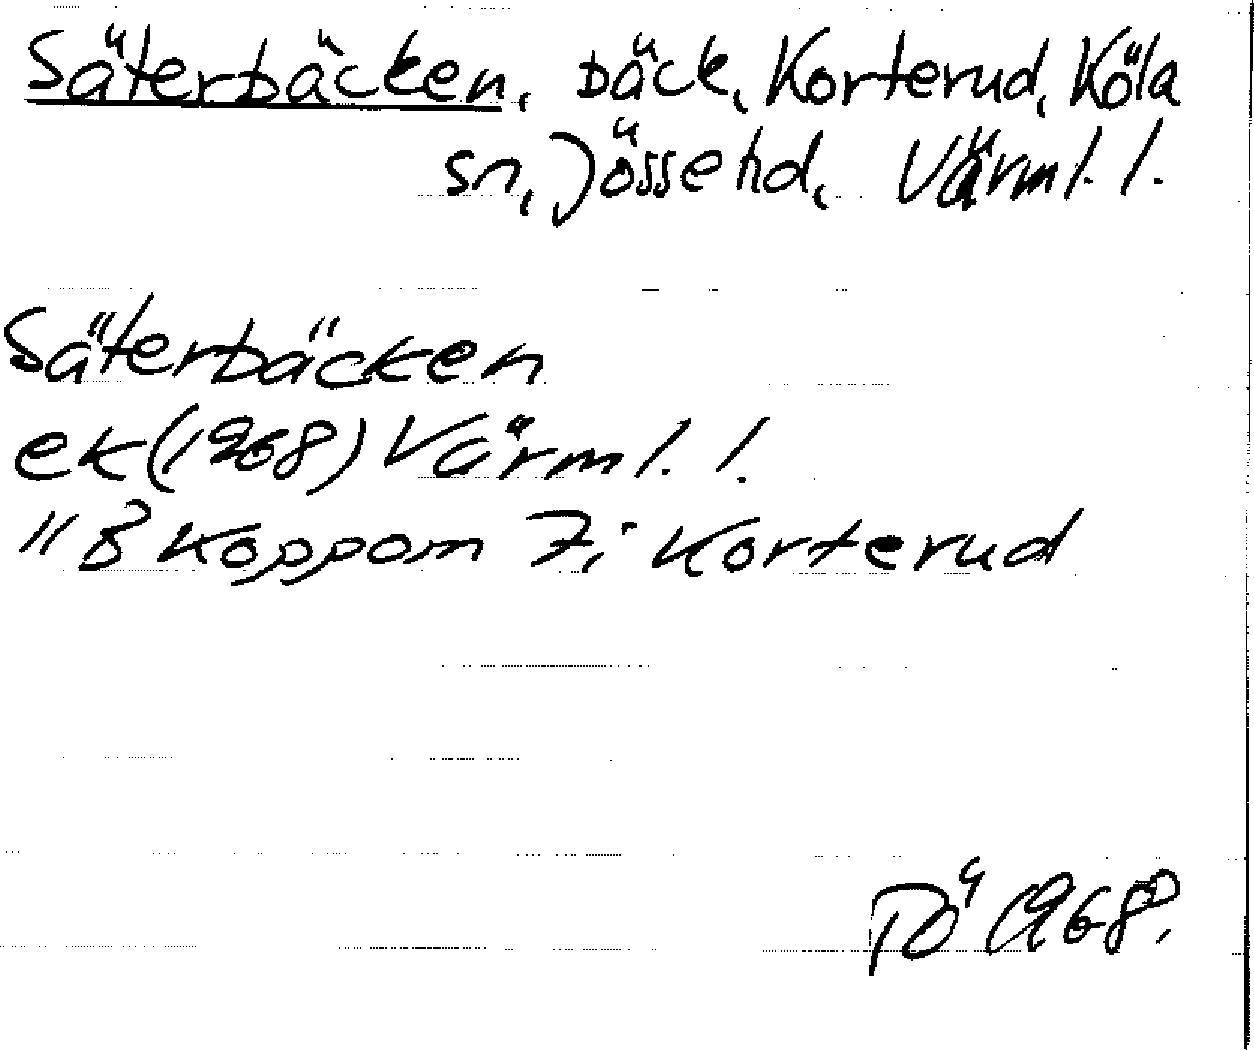 Säterbäcken, bäck, Korterud, Köla
sn, Jösse hd, Värml. l.
Säterbäcken
ek (1968) Värml. l.
" B Koppom 7i Korterud
PÖ 1968.